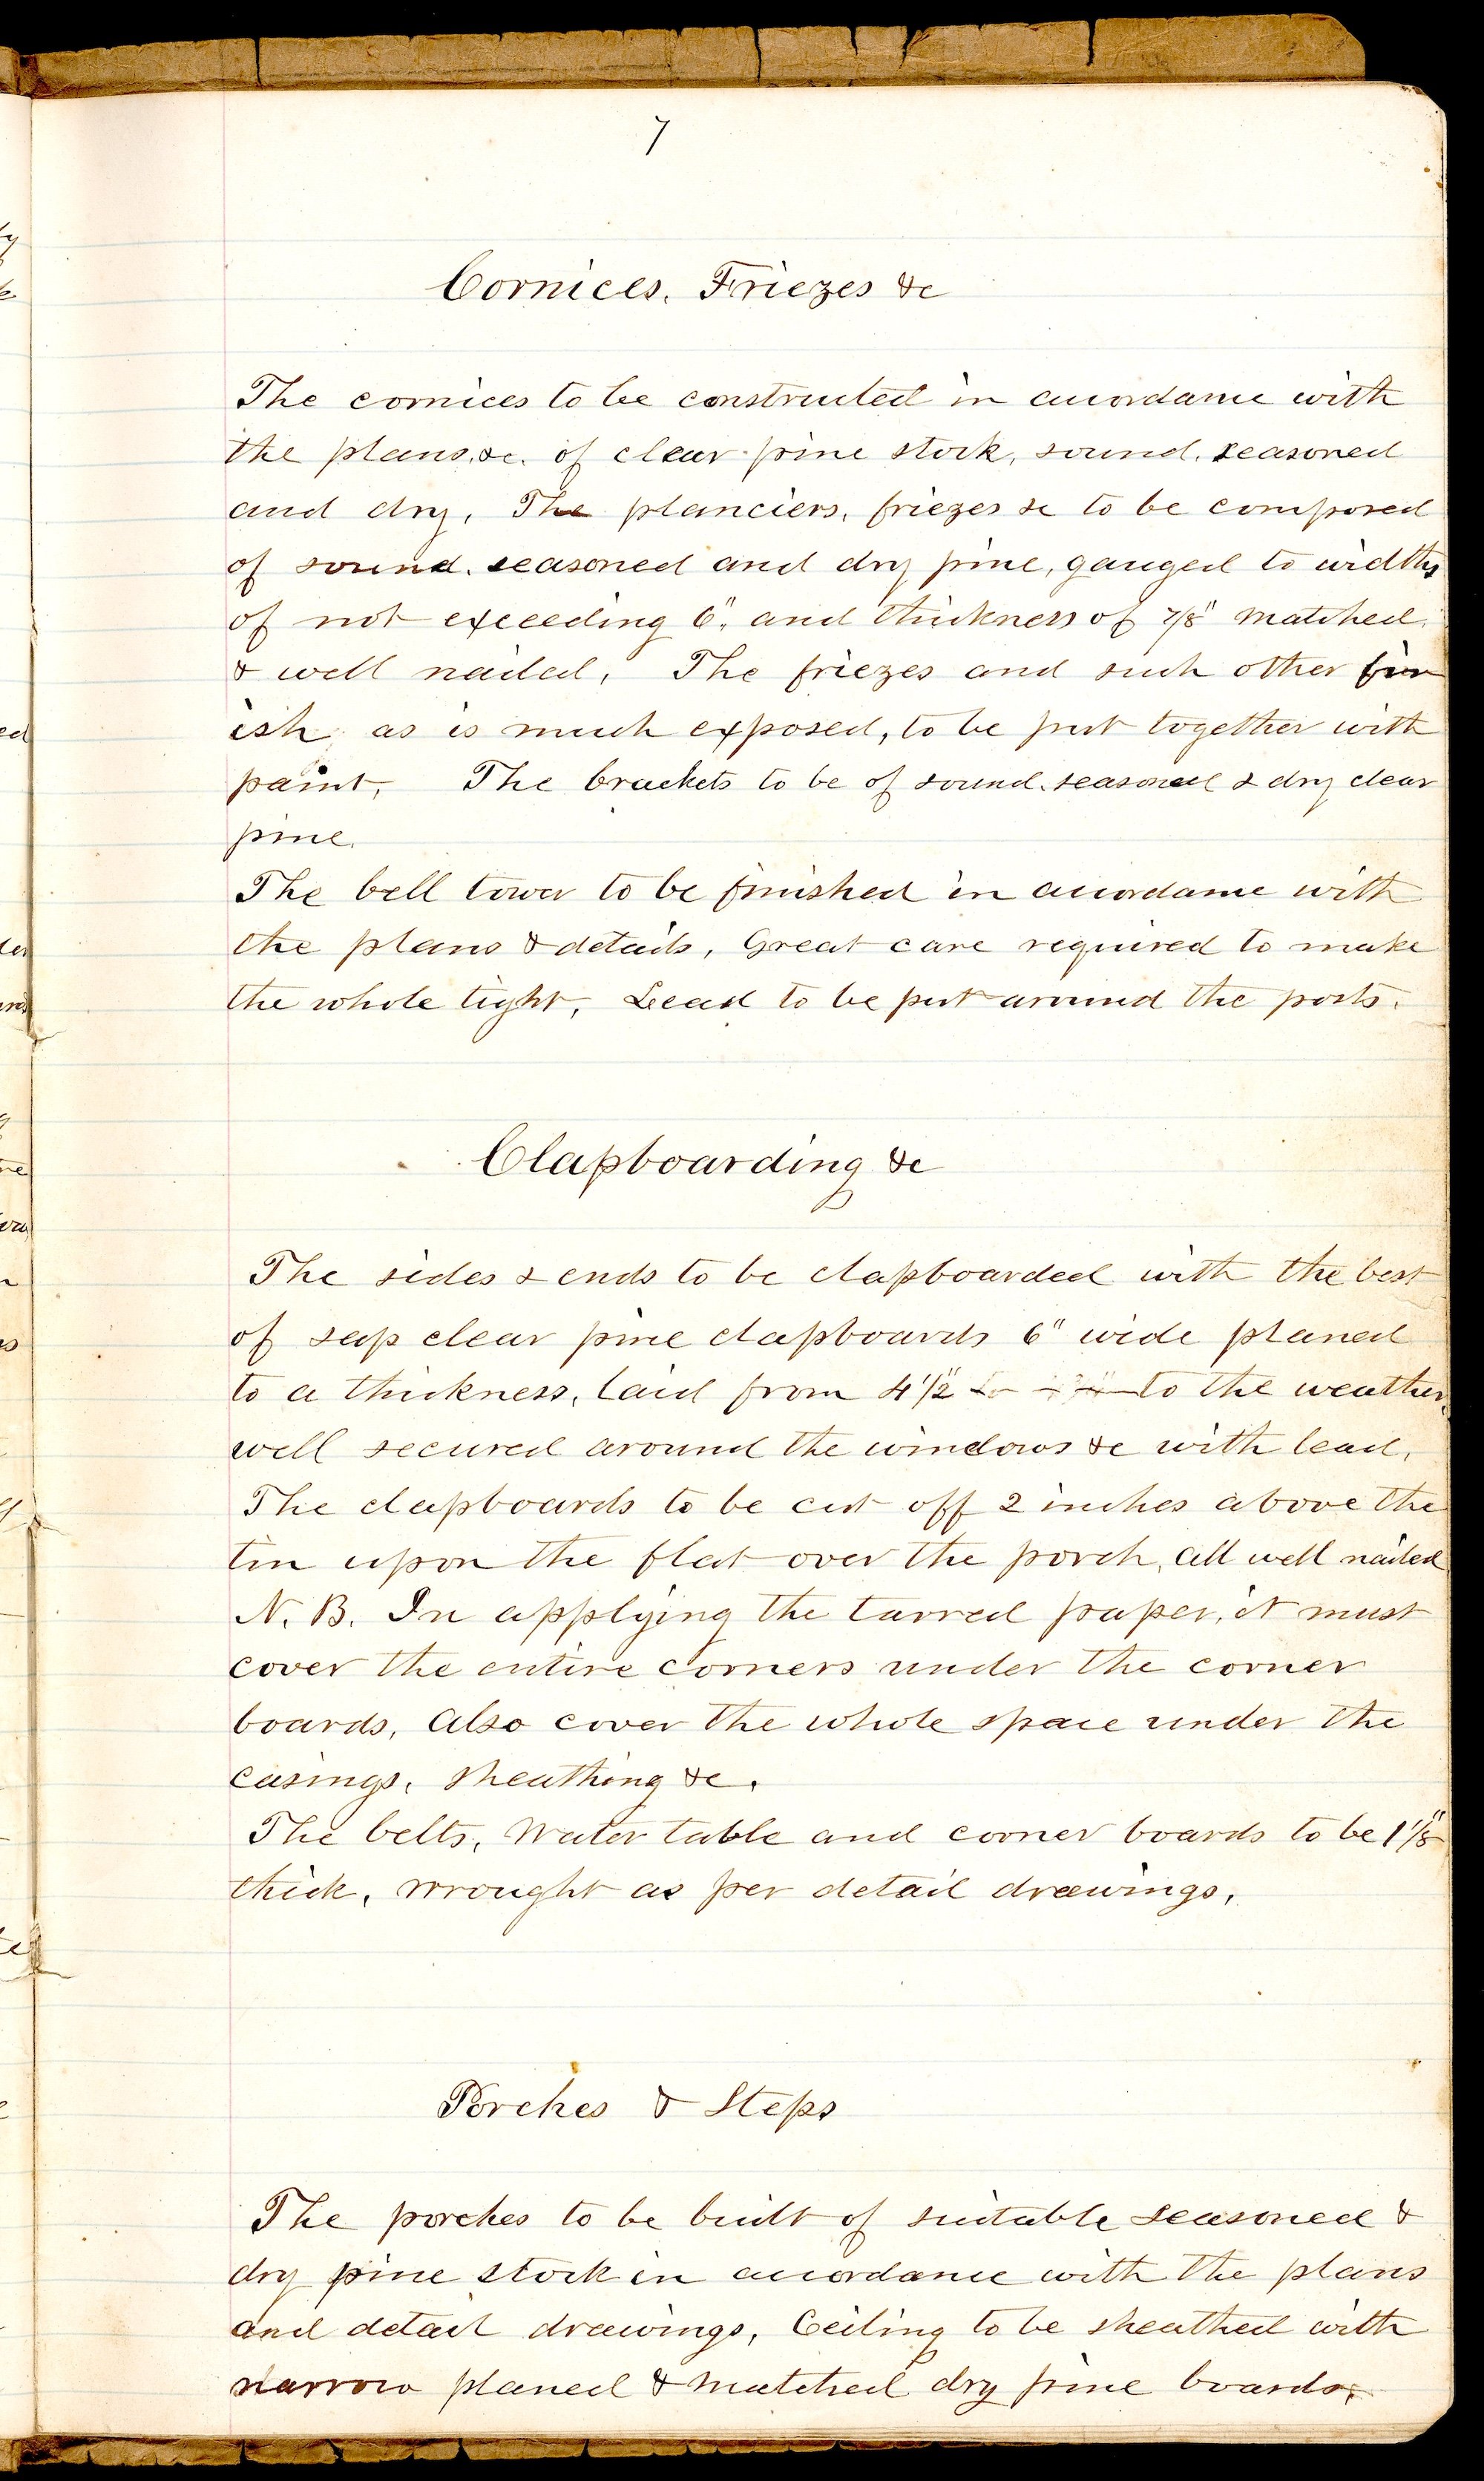 7
Cornices, Friezes &c
The cornices to be constructed in accordance with
the plans, &c. of clear pine stock, sound, seasoned
and dry. The planciers, friezes &c to be composed
of sound, seasoned and dry pine, gauged to widths
of not exceeding 6", and thickness of 7/8" matched
& well nailed. The friezes and such other fin
ish as is much exposed, to be put together with
paint. The brackets to be of sound, seasoned & dry clear
pine.
The bell tower to be finished in accordance with
the plans & details, Great care required to make
the whole tight. Lead to be put around the posts.
Clapboarding &c
The sides & ends to be clapboarded with the best
of sap clear pine clapboards 6" wide planed
to a thickness, laid from 4 1/2" to the weather,
well secured around the windows &c with lead.
The clapboards to be cut off 2 inches above the
tin upon the flat over the porch, all well nailed
N. B. In applying the tarred paper, it must
cover the entire corners under the corner
boards, also cover the whole space under the
casings, sheathing &c.
The belts, water table and corner boards to be 1 1/8"
thick, wrought as per detail drawings.
Porches & Steps
The porches to be built of suitable seasoned &
dry pine stock in accordance with the plans
and detail drawings, Ceiling to be sheathed with
narrow planed & matched dry pine boards.